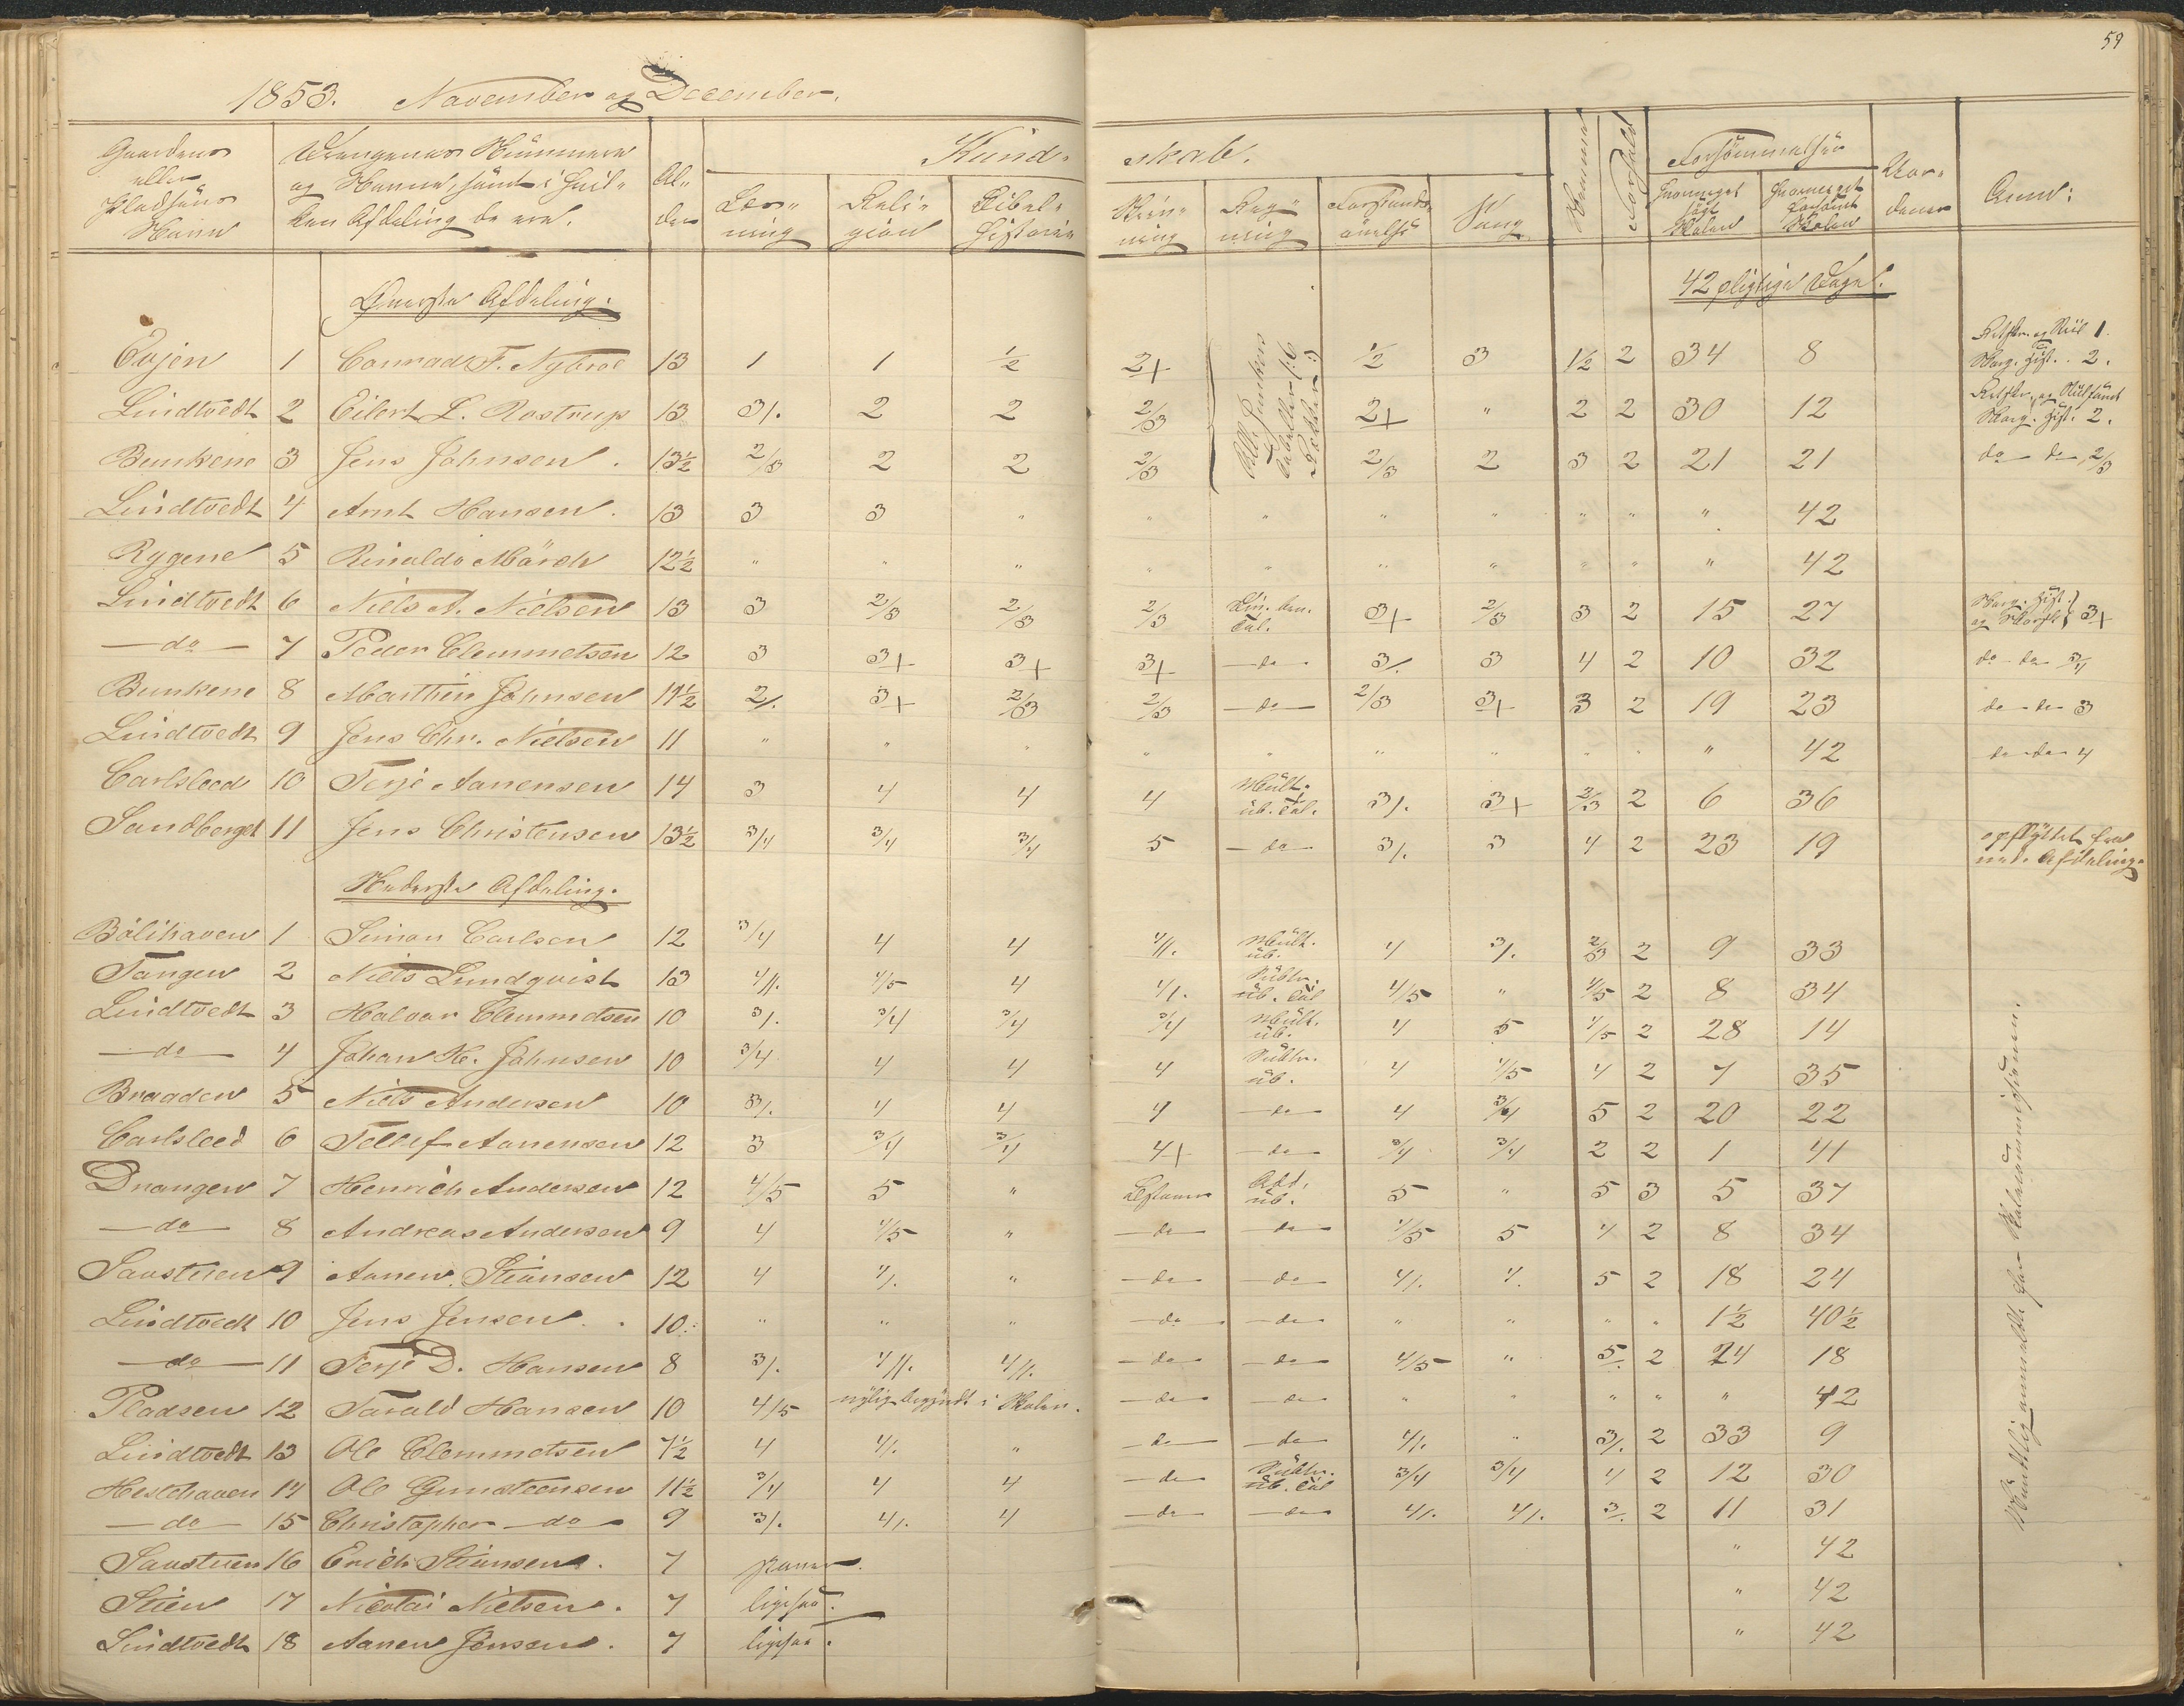 59
1853. November og December.
Gaardens eller Pladsens Navn | Drengenes Nummere og Navne, samt i hvilken Afdeling de ere. | Alder | Kundskab. | Forsømmelser | Anm:
Læsning | Religion | Bibelhistorie | Skrivning | Regning | Forstandsøvelse | Sang | Nemme | Forhold | hvormeget søgt Skolen | hvormeget forsømt Skolen
Øverste Afdeling.
42 pligtige Dage.
Evjen 1 Conrad F. Nybroe 13 1 1 ½ 2+ ½ 3 1½ 2 34 8
Lindtvedt 2 Eilert L. Rostrup 13 3/. 2 2 2/3 2+ " 2 2 30 12
Bunkene 3 Jens Johnsen. 13½ 2/3 2 2 2/3 2/3 2 3 2 21 21 do do 2/3
Lindtvedt 4 Arnt Hansen. 13 3 3 " " " " " " " " 42
Rygene 5 Rinaldo Mörch 12½ " " " " " " " " " " 42
Lindtvedt 6 Niels A. Nielsen 13 3 2/3 2/3 2/3 3+ 2/3 3 2 15 27 3+
do 7 Peder Clemmetsen 12 3 3+ 3+ 3+ do 3/. 3 4 2 10 32 do do 3/4
Bunkene 8 Marthin Johnsen 11½ 2/. 3+ 2/3 2/3 do 2/3 3+ 3 2 19 23 do do 3
Lindtvedt 9 Jens Chr. Nielsen 11 " " " " " " " " " " 42 do do 4
Carlsleed 10 Terje Aanensen 14 3 4 4 4 Mult. üb. Tal. 3/. 3+ 2/3 2 6 36
Sandberget 11 Jens Christensen 13½ 3/4 3/4 3/4 5 do 3/. 3 4 2 23 19 opflyttet fra ned. Afdeling.
Nederste Afdeling.
Bölihaven 1 Simon Carlsen 12 3/4 4 4 4/. Mult. üb. 4 3/. 2/3 2 9 33
Tangen 2 Niels Lundqvist 13 4//. 4/5 4 4/. Subtr. üb. Tal 4/5 " 4/5 2 8 34
Lindtvedt 3 Halvor Clemmetsen 10 3/. 3/4 3/4 3/4 Mult. üb. 4 5 4/5 2 28 14
do 4 Johan H. Johnsen 10 3/4 4 4 4 Subtr. üb. 4 4/5 4 2 7 35
Braaden 5 Niels Andersen 10 3/. 4 4 4 do 4 3/4 5 2 20 22
Carlsleed 6 Tellef Aanensen 12 3 3/4 3/4 4+ do 3/4 3/4 2 2 1 41
Drangen 7 Henrich Andersen 12 4/5 5 " Add. üb. 5 " 5 3 5 37
do 8 Andreas Andersen 9 4 4/5 " do do 4/5 5 4 2 8 34
Saustuen 9 Aanen Stiansen 12 4 4/. " do do 4/. 4/. 5 2 18 24
Lindtvedt 10 Jens Jensen. 10. " " " do do " " " " 1½ 40½
do 11 Terje D. Hansen 8 3/. 4//. 4//. do do 4/5 " 5/. 2 24 18
Pladsen 12 Tarald Hansen 10 4/5 nylig begyndt i Skolen. do do " " " " " 42
Lindtvedt 13 Ole Clemmetsen 7½ 4 4/. " do do 4/. " 3/. 2 33 9
Heslehaven 14 Ole Gunsteensen 11½ 3/4 4 4 do Subtr. üb. Tal 3/4 3/4 4 2 12 30
do 15 Christopher do 9 3/. 4/. 4 do do 4/. 4/. 3/. 2 11 31
Saustuen 16 Erich Stiansen. 7 " 42
Stien 17 Nicolai Nielsen. 7 ligesaa. " 42
Lindtvedt 18 Aanen Jensen. 7 ligesaa. " 42